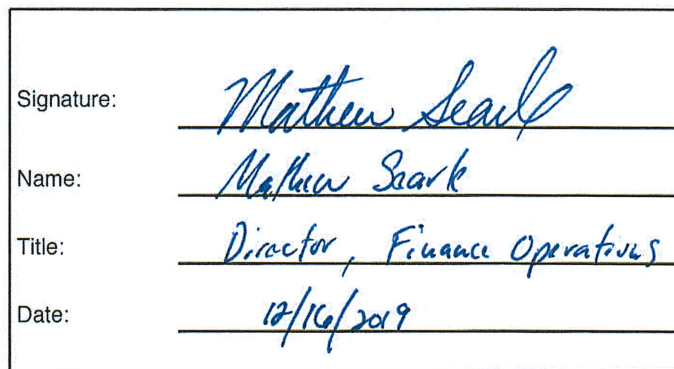 Signature: Mathew Searle
Name: Mathew
Title: Director, Finance Operations
Date: 12/16/2019